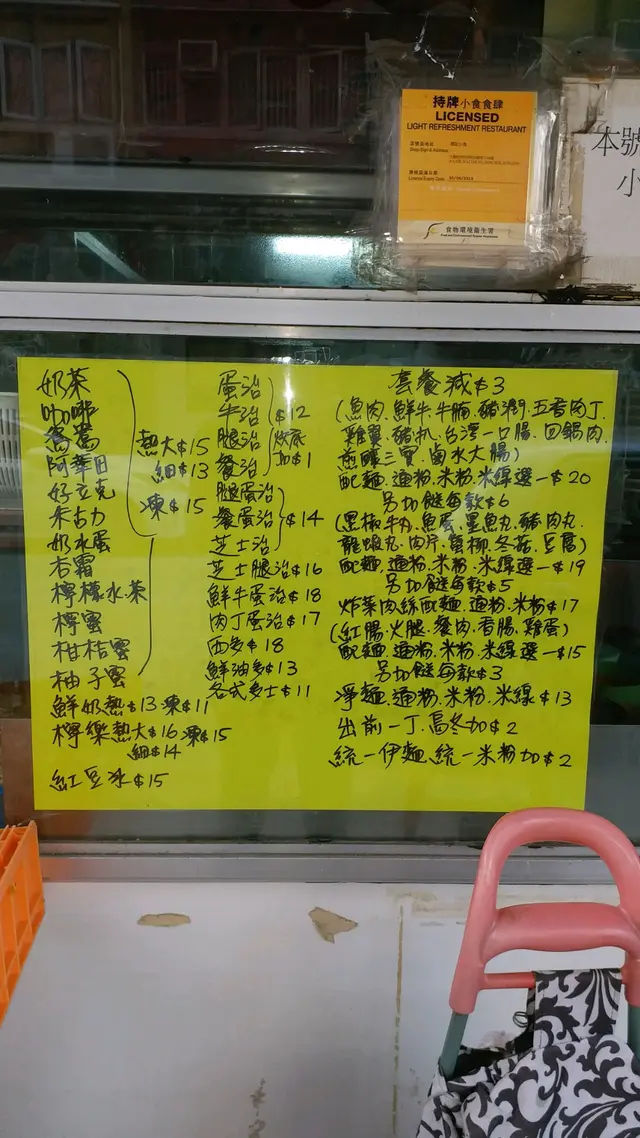 持牌小食食肆
LICENSED
LIGHT REFRESHMENT RESTAURANT
食物環境衞生署
本號
小
奶茶
咖啡
鴛鴦
阿華田
好立克
朱古力
奶水蛋
杏霜
檸檬水茶
檸蜜
柑桔蜜
柚子蜜
熱大$15
細$13
凍$15
鮮奶熱$13凍$11
檸樂熱大$16凍$15
細$14
紅豆冰$15
蛋治
牛治
腿治
餐治
$12
烘底
加$1
腿蛋治
餐蛋治
芝士治
$14
芝士腿治$16
鮮牛蛋治$18
肉丁蛋治$17
西多$18
鮮油多$13
各式多士$11
套餐減$3
(魚肉.鮮牛.牛腩.豬潤.五香肉丁.
雞翼.豬扒.台灣一口腸.回鍋肉.
煎釀三寶.鹵水大腸)
配麵.通粉.米粉.米線選一$20
另加餸每款$6
(黑椒牛丸.魚蛋.墨魚丸.豬肉丸.
龍蝦丸.肉片.蟹柳.冬菇.豆腐)
配麵.通粉.米粉.米線選一$19
另加餸每款$5
炸菜肉絲配麵.通粉.米粉$17
(紅腸.火腿.餐肉.香腸.雞蛋)
配麵.通粉.米粉.米線選一$15
另加餸每款$3
净麵.通粉.米粉.米線$13
出前一丁.烏冬加$2
統一伊麵.統一米粉加$2